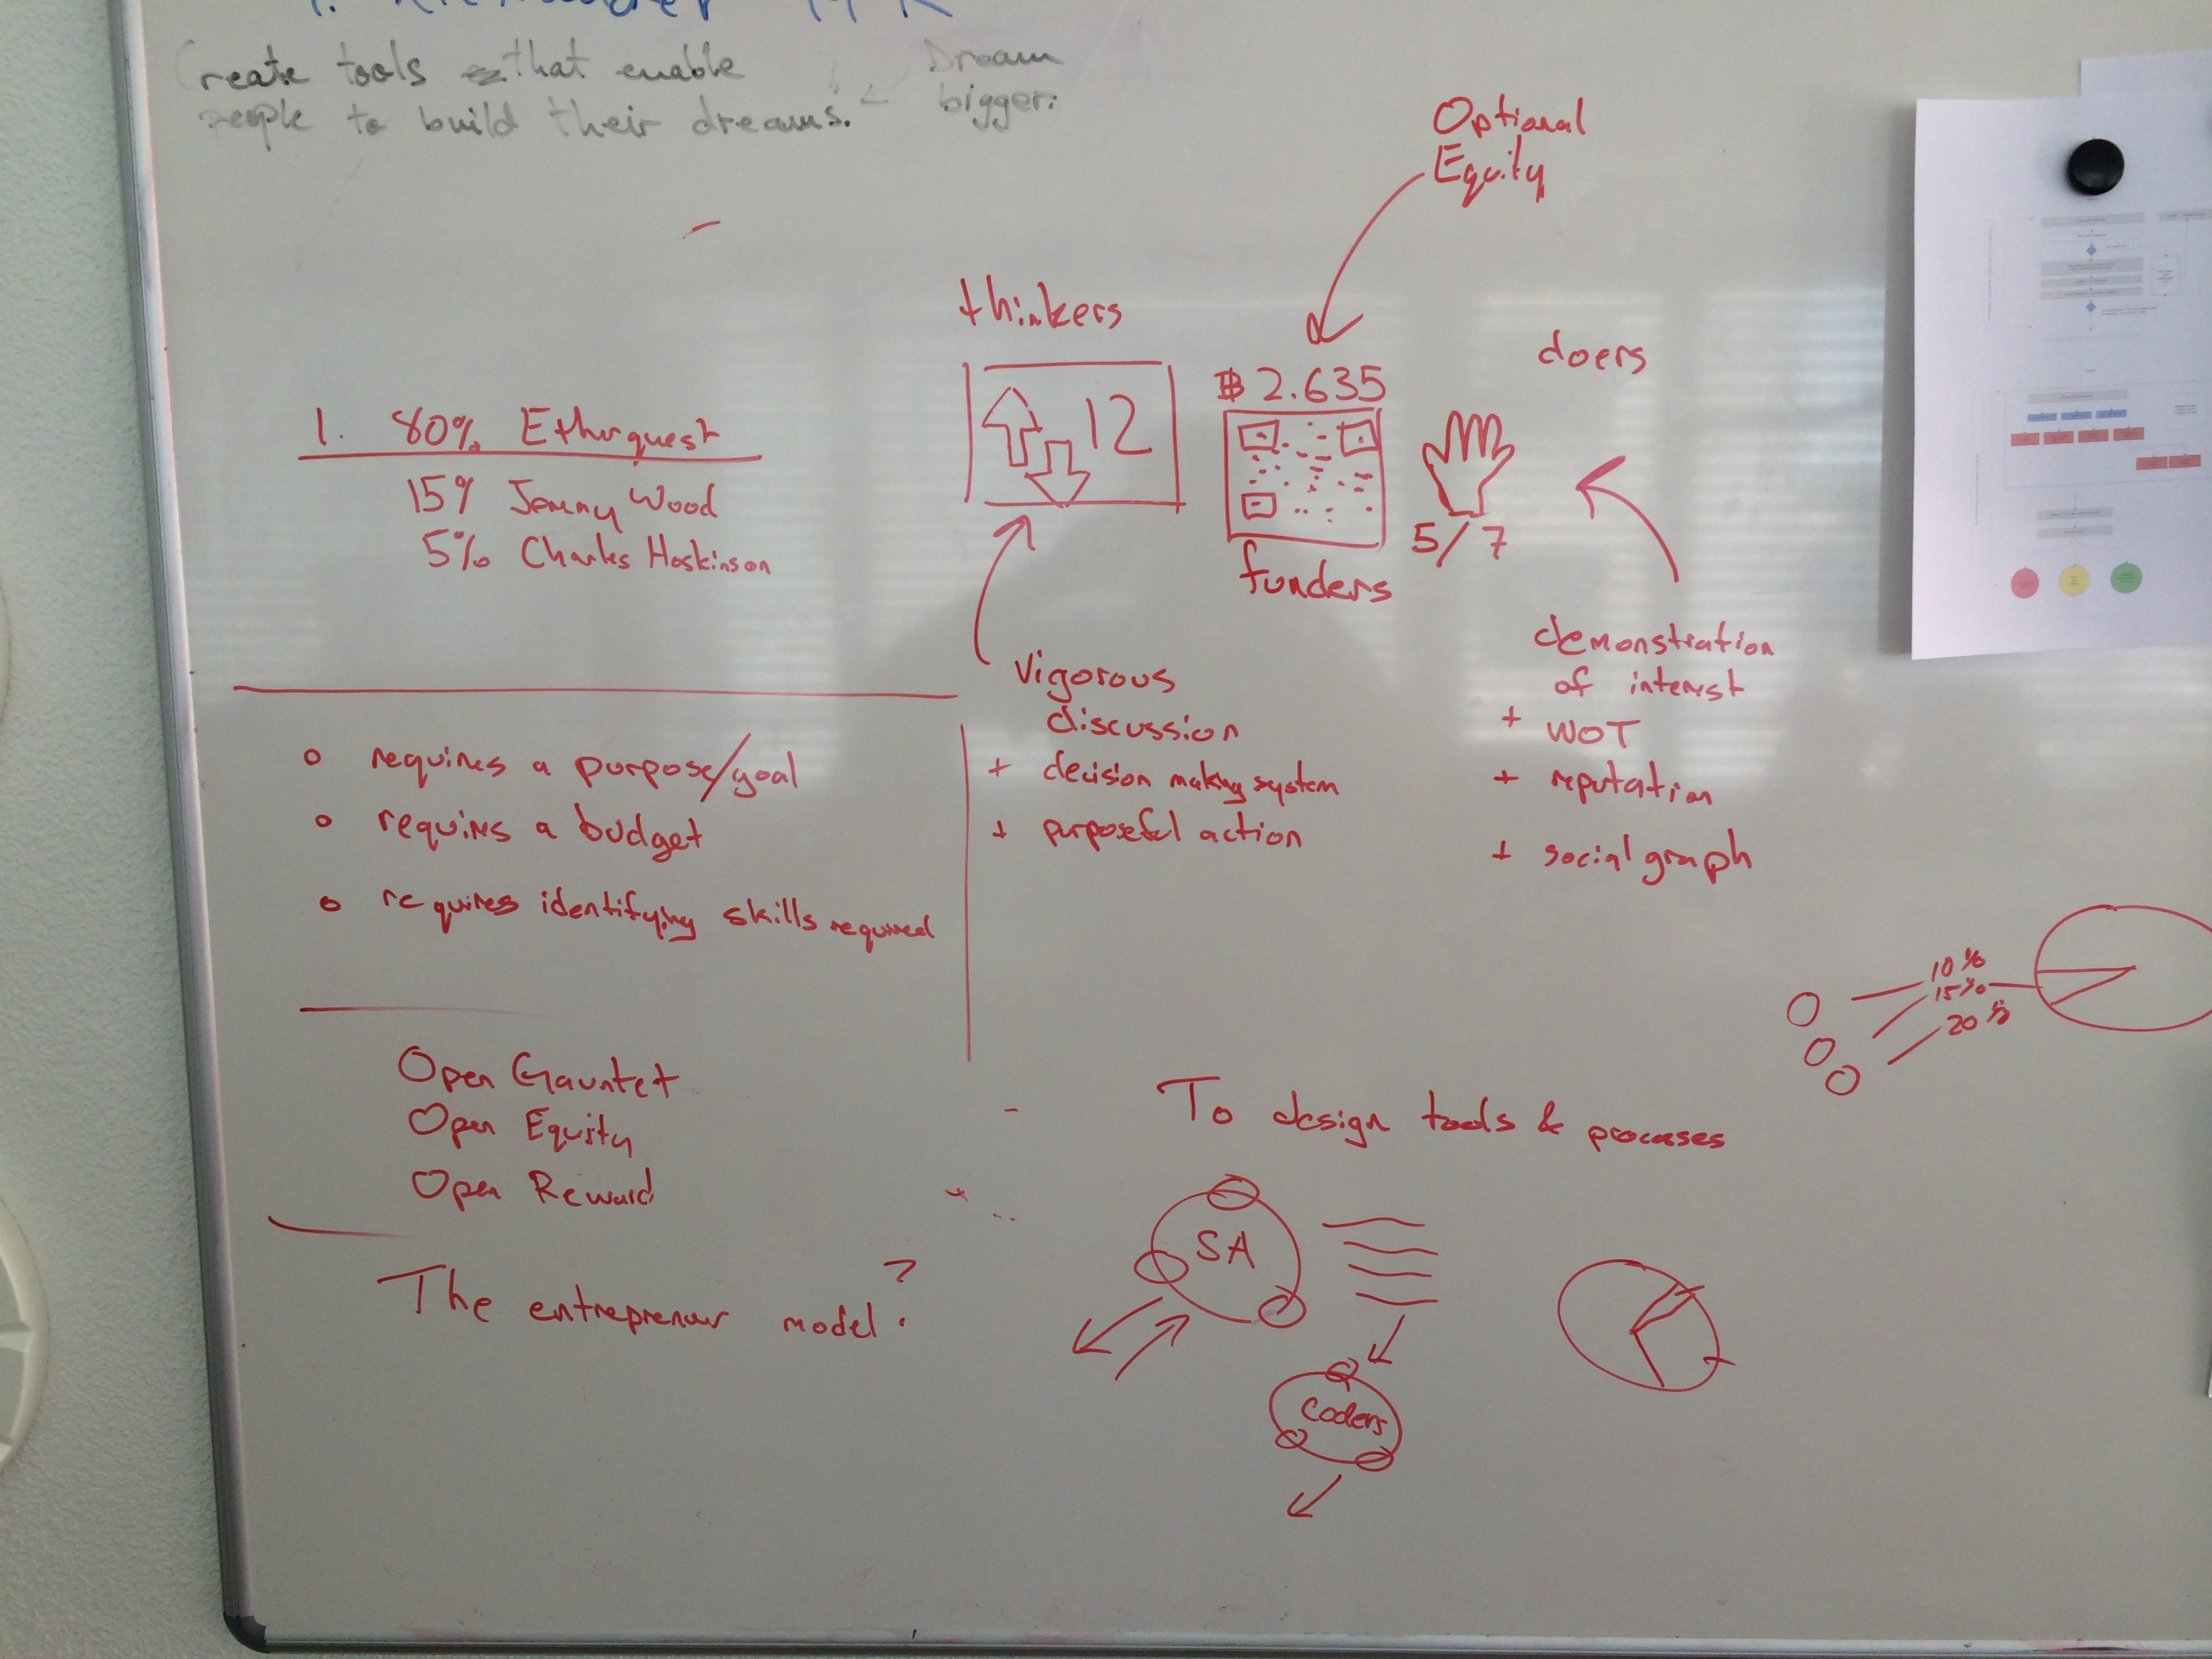 Create tools that enable
people to build their dreams.
Dream
bigger.
Optional
Equity
thinkers
12
฿ 2.635
funders
doers
5/7
1. 80% Etherquest
15% Jemmy Wood
5% Charles Hoskinson
Vigorous
discussion
+ decision making system
+ purposeful action
demonstration
of interest
+ WOT
+ reputation
+ social graph
o requires a purpose/goal
o requires a budget
o requires identifying skills required
10%
15%
20%
Open Gauntlet
Open Equity
Open Reward
The entreprenuer model?
To design tools & processes
SA
Coders